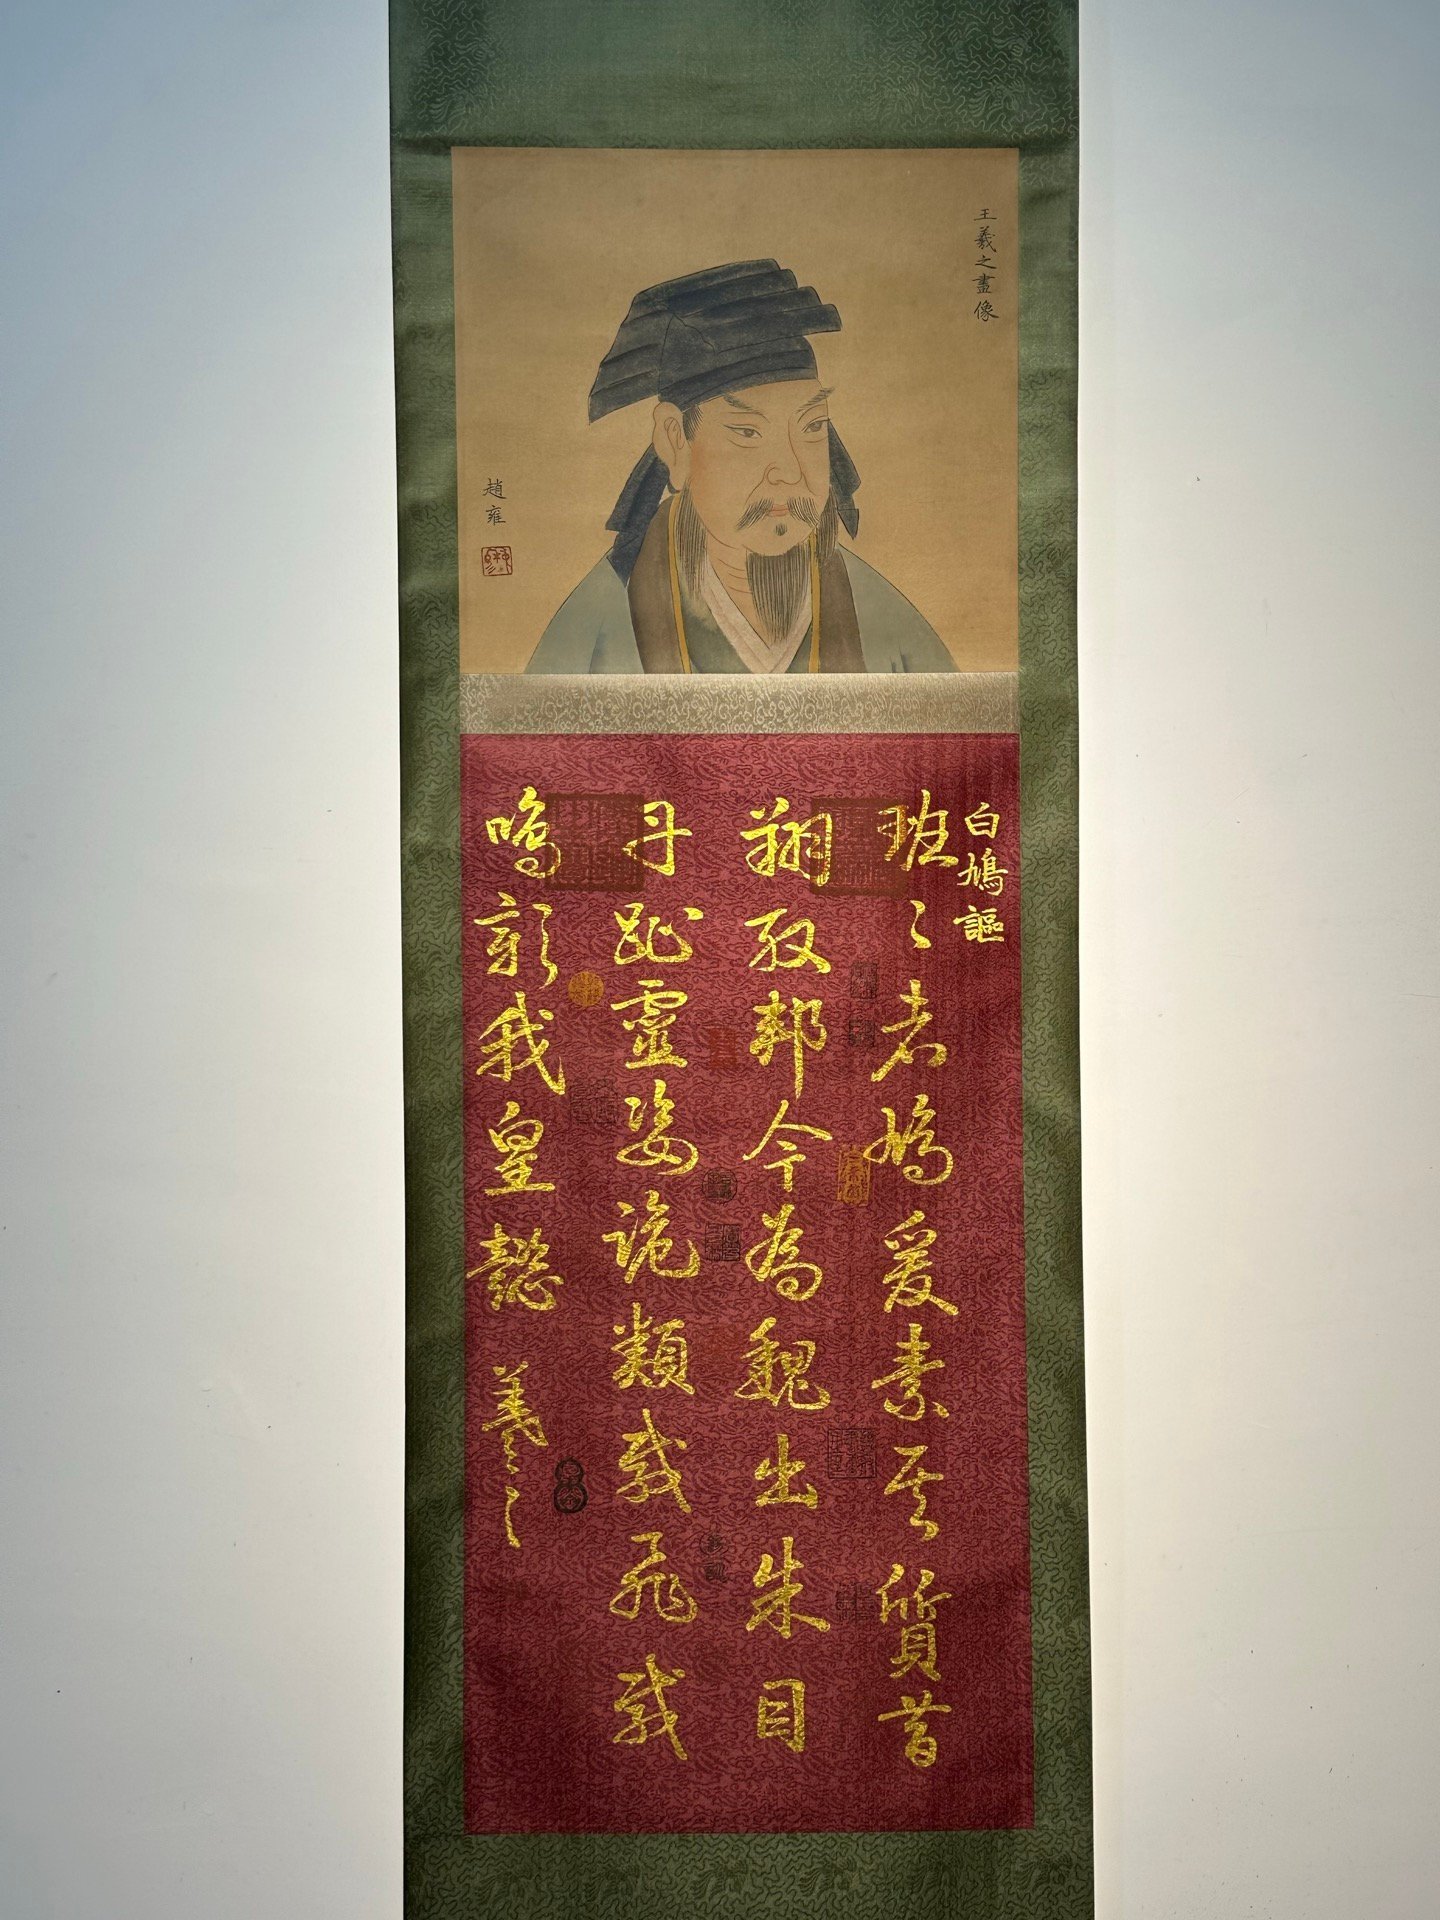 王羲之畫像
趙雍
白鳩謳
班々者鳩爰素其質昔
翔殷邦今為魏出朱目
丹趾靈姿詭類載飛載
鳴彰我皇懿
羲之